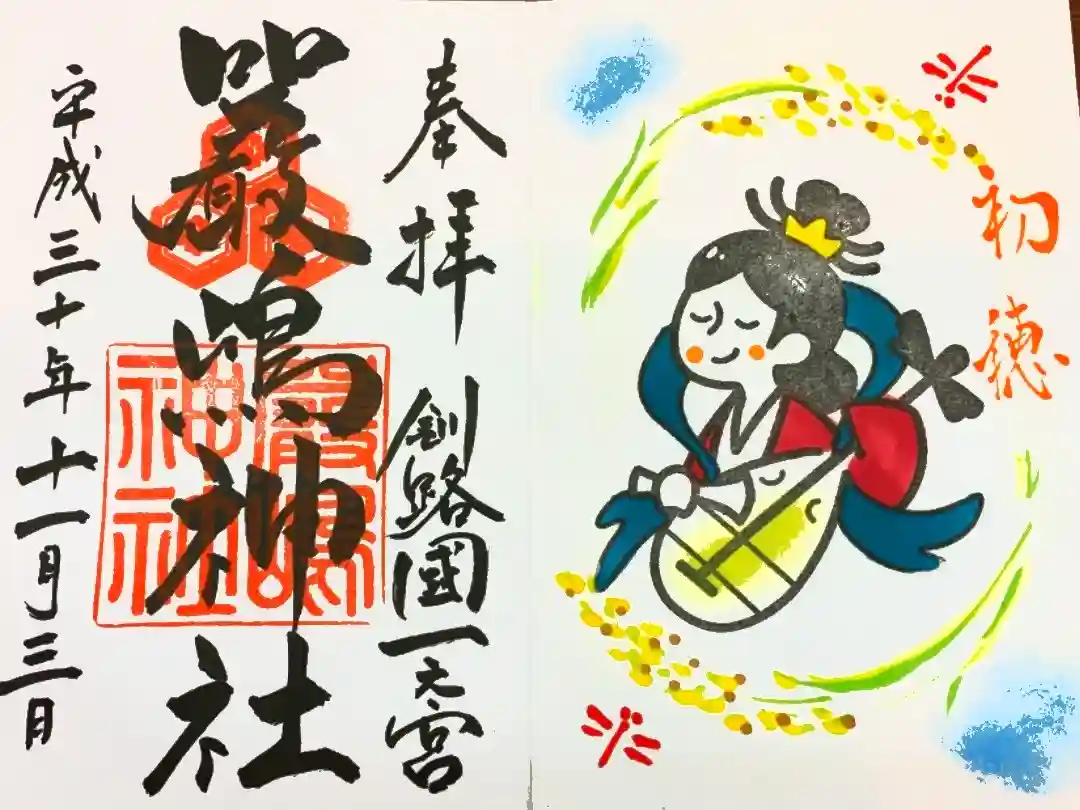 初穂
奉拝 釧路國一之宮
嚴嶋神社
嚴嶋
神社
平成三十年十一月三日